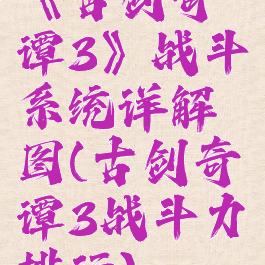 《古剑奇
谭3》战斗
系统详解
图(古剑奇
谭3战斗力
排行)